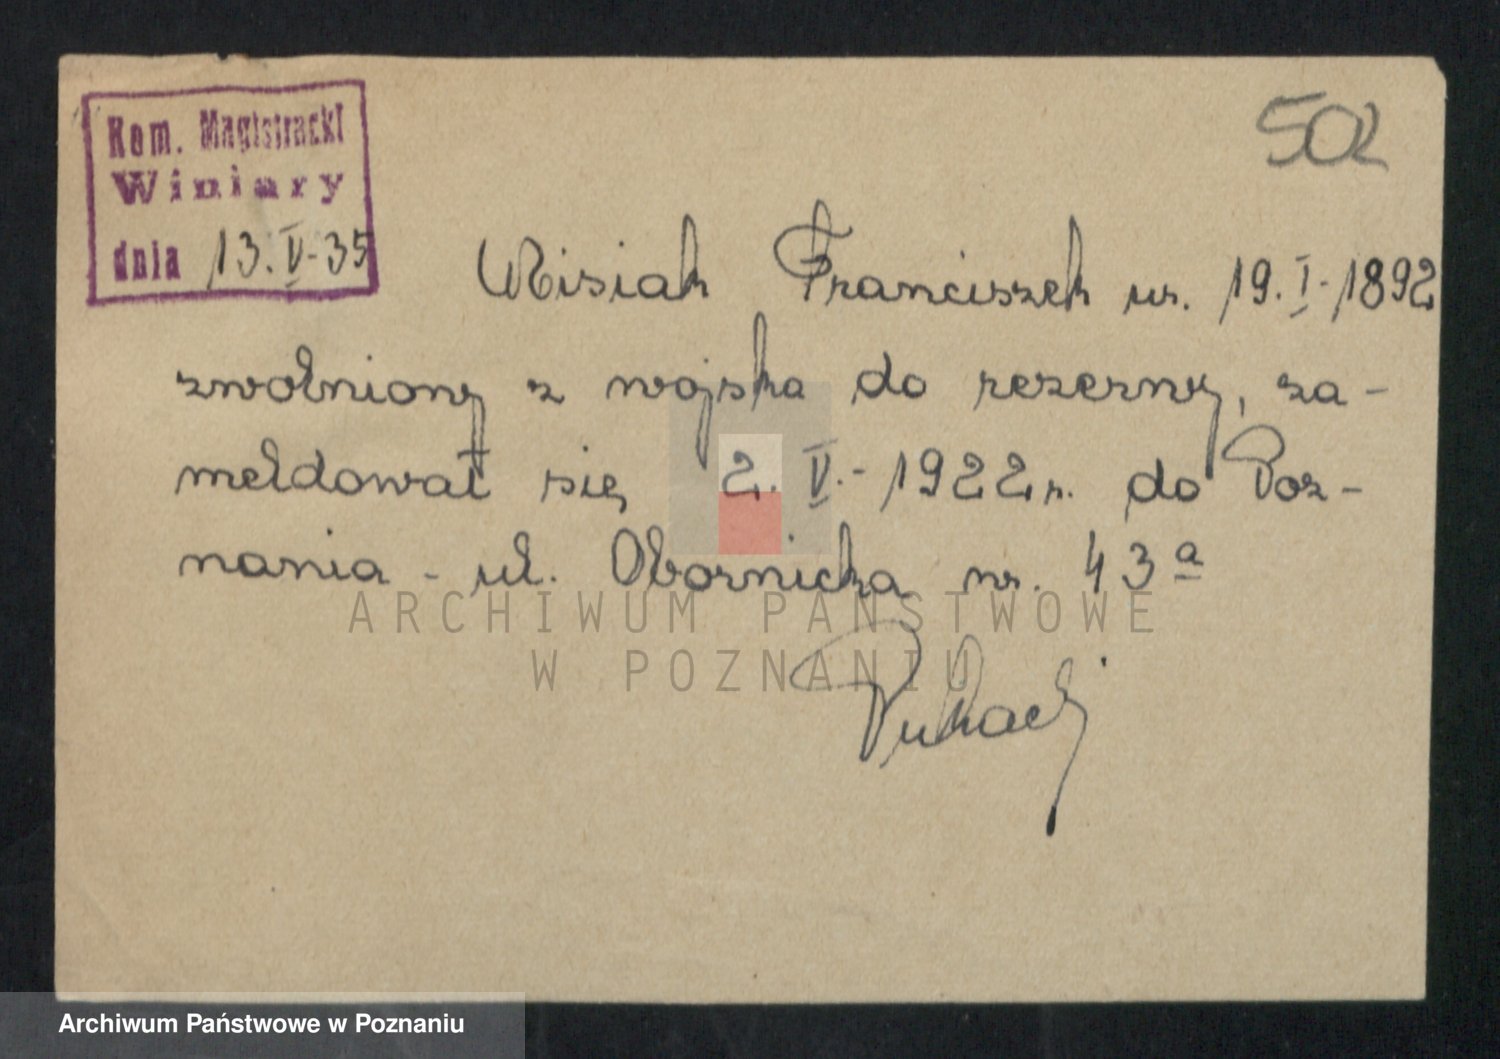 Kom. Magistracki
Winiary
dnia 13.V-35
502
Wisiak Franciszek ur. 19.I-1892
zwolniony z wojska do rezerwy, za-
meldował się 2. V.- 1922 r. do Poz-
nania - ul. Obornicka nr. 43a
ARCHIWUM PAŃSTWOWE
W POZNANIU
Archiwum Państwowe w Poznaniu